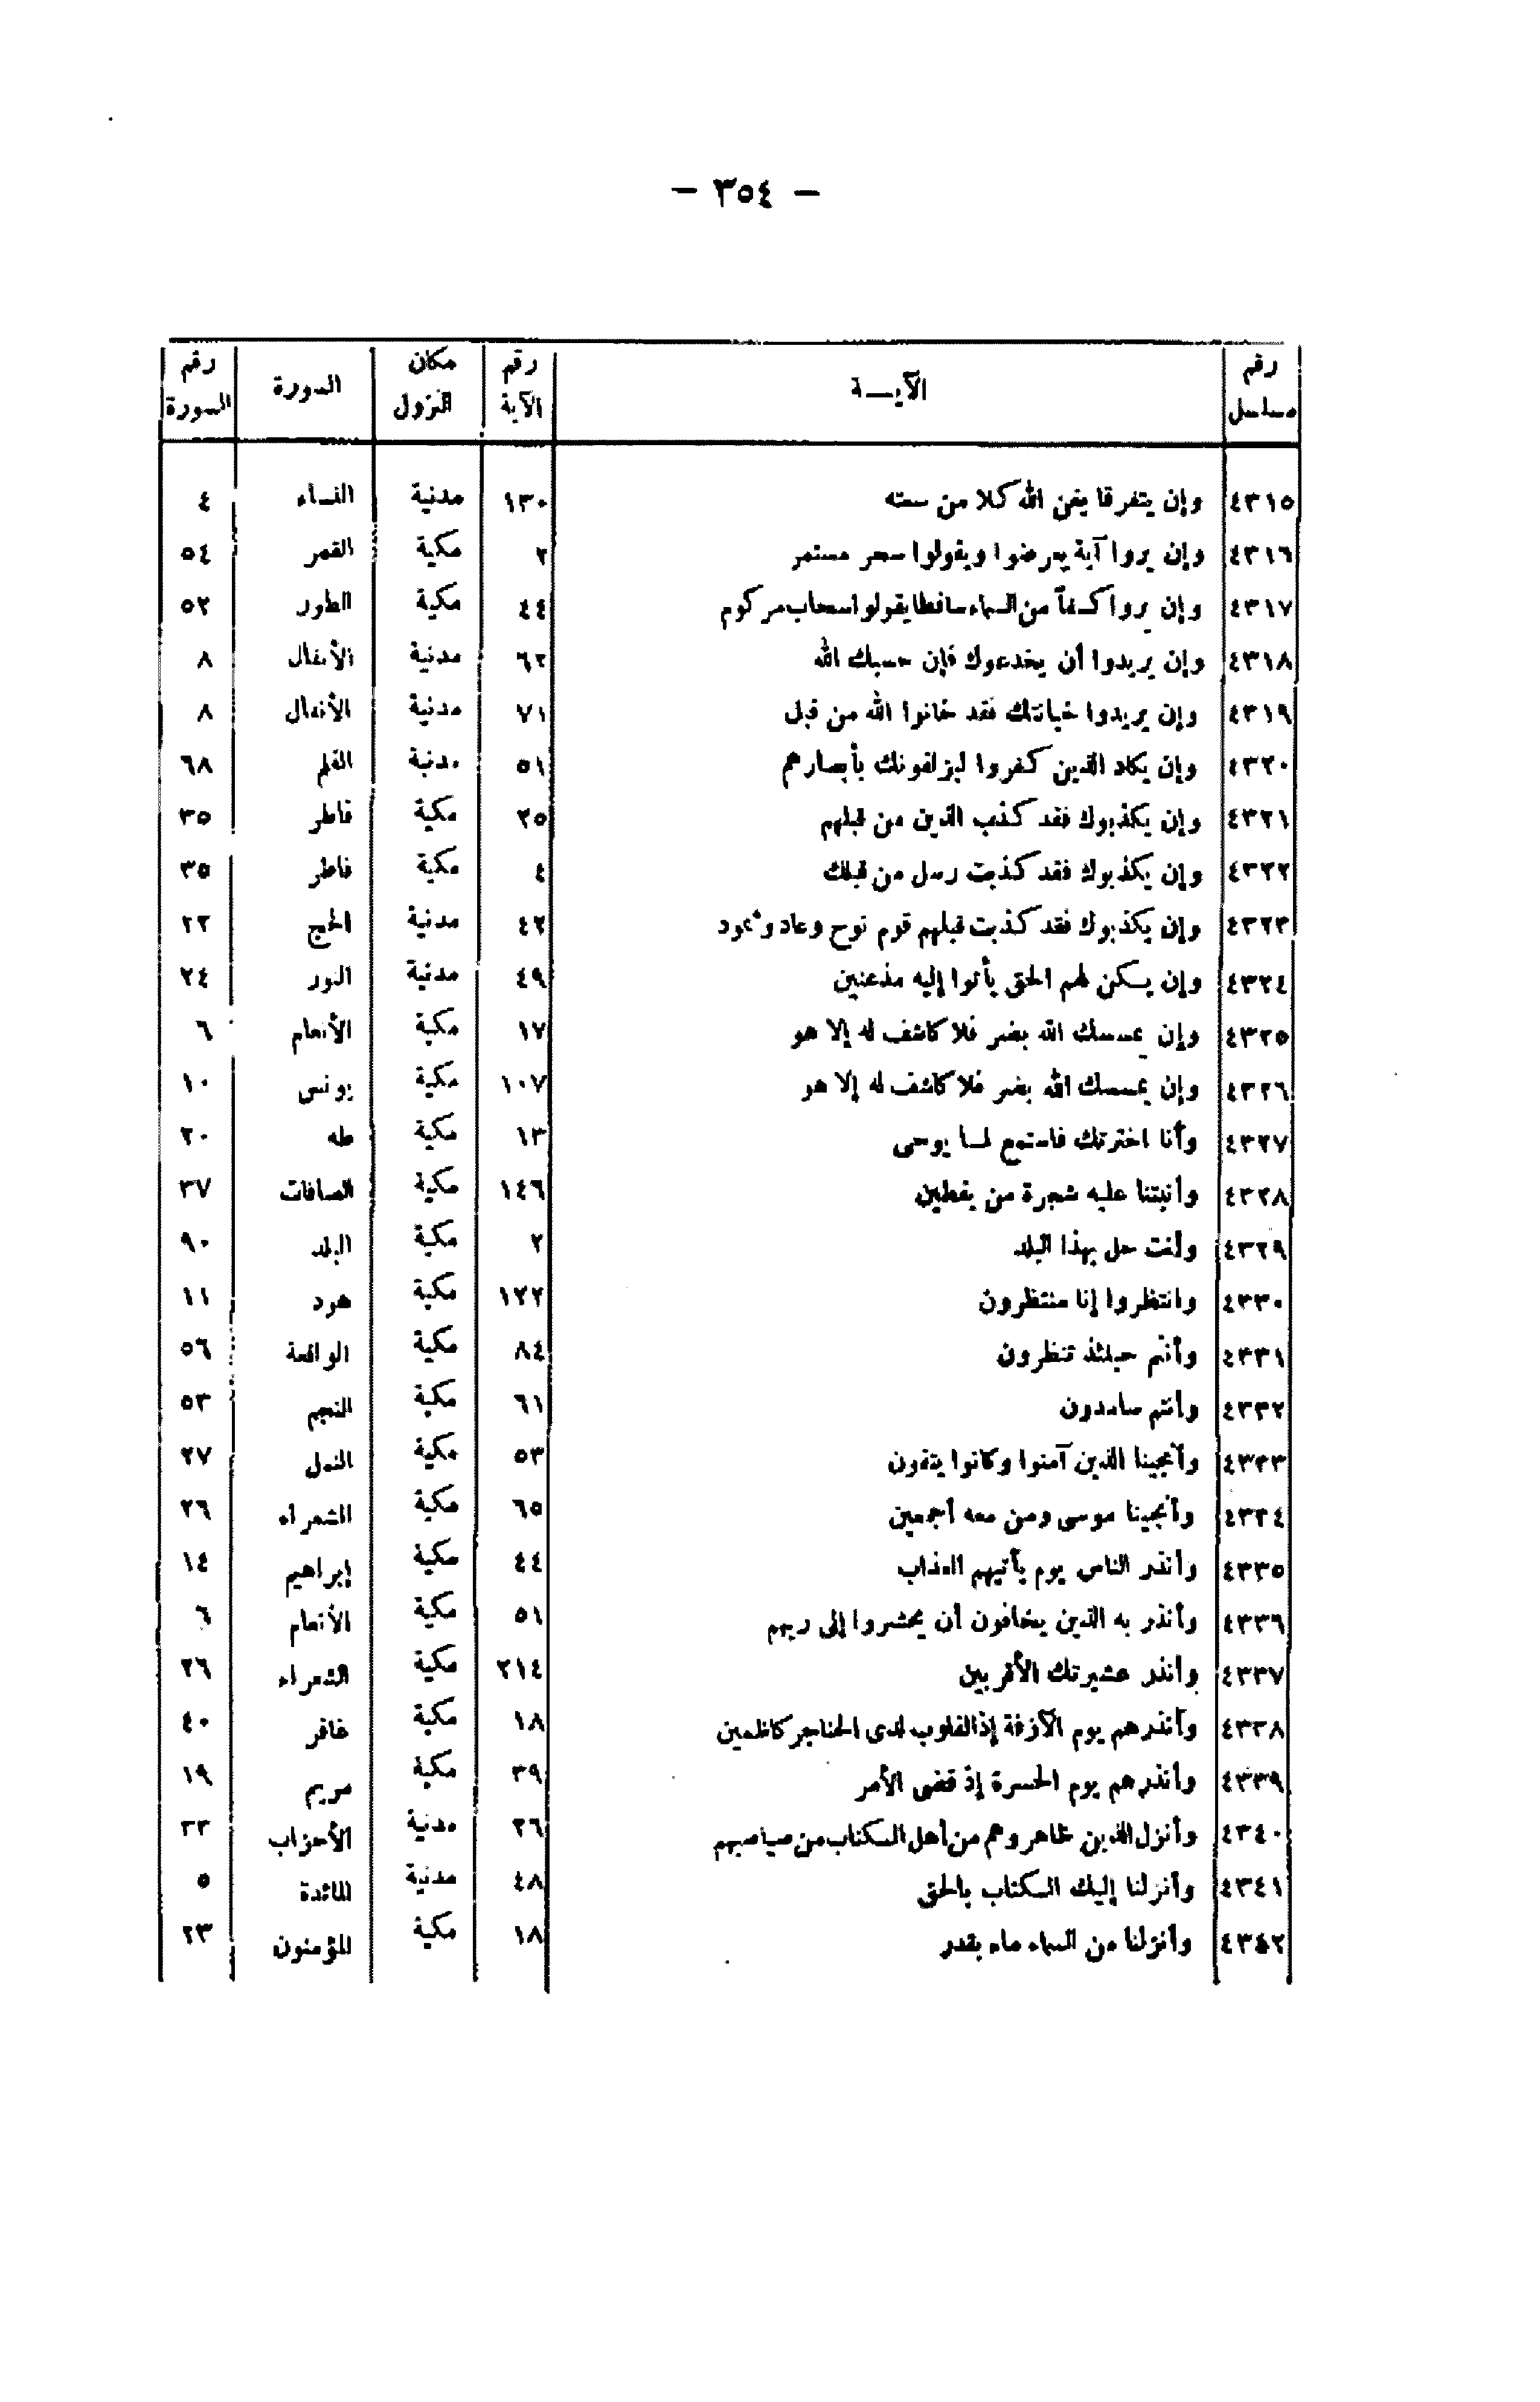 — ٣٥٤ —
رقم مسلسل | الآيـــة | رقم الآية | مكان النزول | السورة | رقم السورة
٤٣١٥ | وإن يتفرقا يغن الله كلا من سعته | ١٣٠ | مدنية | النساء | ٤
٤٣١٦ | وإن يروا آية يعرضوا ويقولوا سحر مستمر | ٢ | مكية | القمر | ٥٤
٤٣١٧ | وإن يروا كسفاً من السماء ساقطا يقولوا سحاب مركوم | ٤٤ | مكية | الطور | ٥٢
٤٣١٨ | وإن يريدوا أن يخدعوك فإن حسبك الله | ٦٢ | مدنية | الأنفال | ٨
٤٣١٩ | وإن يريدوا خيانتك فقد خانوا الله من قبل | ٧١ | مدنية | الأنفال | ٨
٤٣٢٠ | وإن يكاد الذين كفروا ليزلقونك بأبصارهم | ٥١ | مدنية | القلم | ٦٨
٤٣٢١ | وإن يكذبوك فقد كذب الذين من قبلهم | ٢٥ | مكية | فاطر | ٣٥
٤٣٢٢ | وإن يكذبوك فقد كذبت رسل من قبلك | ٤ | مكية | فاطر | ٣٥
٤٣٢٣ | وإن يكذبوك فقد كذبت قبلهم قوم نوح وعاد وثمود | ٤٢ | مدنية | الحج | ٢٢
٤٣٢٤ | وإن يكن لهم الحق يأتوا إليه مذعنين | ٤٩ | مدنية | النور | ٢٤
٤٣٢٥ | وإن يمسسك الله بضر فلا كاشف له إلا هو | ١٧ | مكية | الأنعام | ٦
٤٣٢٦ | وإن يمسسك الله بضر فلا كاشف له إلا هو | ١٠٧ | مكية | يونس | ١٠
٤٣٢٧ | وأنا اخترتك فاستمع لما يوحى | ١٣ | مكية | طه | ٢٠
٤٣٢٨ | وأنبتنا عليه شجرة من يقطين | ١٤٦ | مكية | الصافات | ٣٧
٤٣٢٩ | وأنت حل بهذا البلد | ٢ | مكية | البلد | ٩٠
٤٣٣٠ | وانتظروا إنا منتظرون | ١٢٢ | مكية | هود | ١١
٤٣٣١ | وأنتم حينئذ تنظرون | ٨٤ | مكية | الواقعة | ٥٦
٤٣٣٢ | وأنتم سامدون | ٦١ | مكية | النجم | ٥٣
٤٣٣٣ | وأنجينا الذين آمنوا وكانوا يتقون | ٥٣ | مكية | النمل | ٢٧
٤٣٣٤ | وأنجينا موسى ومن معه أجمعين | ٦٥ | مكية | الشعراء | ٢٦
٤٣٣٥ | وأنذر الناس يوم يأتيهم العذاب | ٤٤ | مكية | إبراهيم | ١٤
٤٣٣٦ | وأنذر به الذين يخافون أن يحشروا إلى ربهم | ٥١ | مكية | الأنعام | ٦
٤٣٣٧ | وأنذر عشيرتك الأقربين | ٢١٤ | مكية | الشعراء | ٢٦
٤٣٣٨ | وأنذرهم يوم الآزفة إذ القلوب لدى الحناجر كاظمين | ١٨ | مكية | غافر | ٤٠
٤٣٣٩ | وأنذرهم يوم الحسرة إذ قضى الأمر | ٣٩ | مكية | مريم | ١٩
٤٣٤٠ | وأنزل الذين ظاهروهم من أهل الكتاب من صياصيهم | ٢٦ | مدنية | الأحزاب | ٣٣
٤٣٤١ | وأنزلنا إليك الكتاب بالحق | ٤٨ | مدنية | المائدة | ٥
٤٣٤٢ | وأنزلنا من السماء ماء بقدر | ١٨ | مكية | المؤمنون | ٢٣